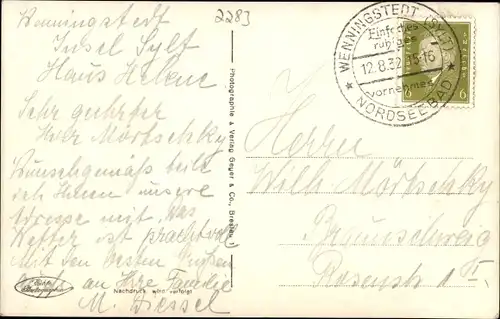 2283
Wenningstedt
Insel Sylt
Haus Helene
Sehr geehrter
Herr Mörtschky
Wunschgemäss teile
ich Ihnen unsere
Adresse mit, das
Wetter ist prachtvoll
Mit den besten Grüßen
auch an Ihre Familie
M. Diessel
Nachdruck wird verfolgt
Photographie & Verlag Geyer & Co., Breslau 1
WENNINGSTEDT (SYLT)
Einfaches
ruhiges
12.8.32.15-16
vornehmes
NORDSEEBAD
6 6
Herrn
Wilh Mörtschky
Braunschweig
Rosenstr 1